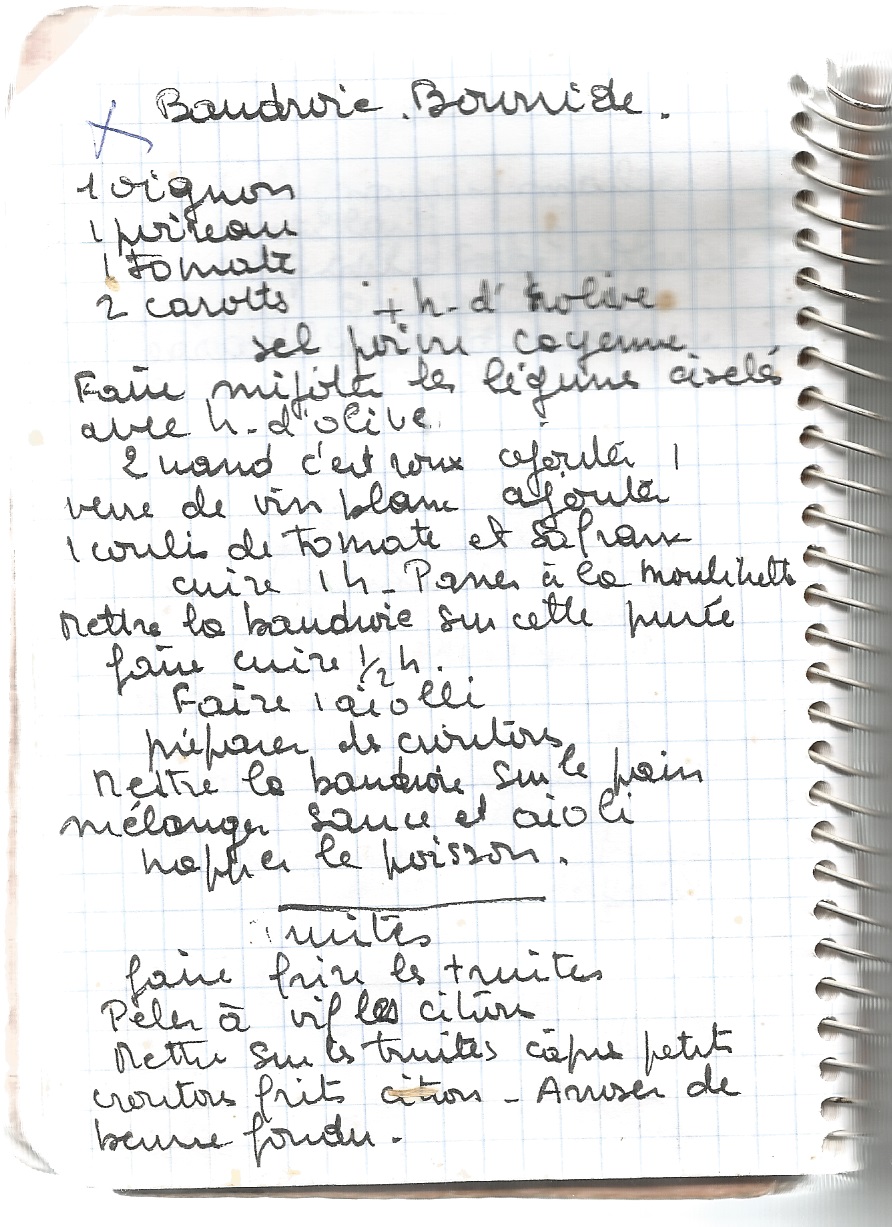 Baudroie . Bourride .
1 oignon
1 poireau
1 tomate
2 carotts + h. d' olive
sel poivre cayenne
Faire mijoter les légumes ciselés
avec h. d'olive
Quand c'est roux ajouter 1
verre de vin blanc ajouter
1 coulis de tomate et safran
cuire 1 h - Passer à la moulinette
Mettre la baudroie sur cette purée
faire cuire 1/2 h.
Faire 1 aiolli
préparer des croutons
Mettre la baudroie sur le pain
mélanger sauce et aioli
napper le poisson .
Truites
faire frire les truites
Peler à vif les citrons
Mettre sur les truites câpres petits
croutons frits citron - Arroser de
beurre fondu .